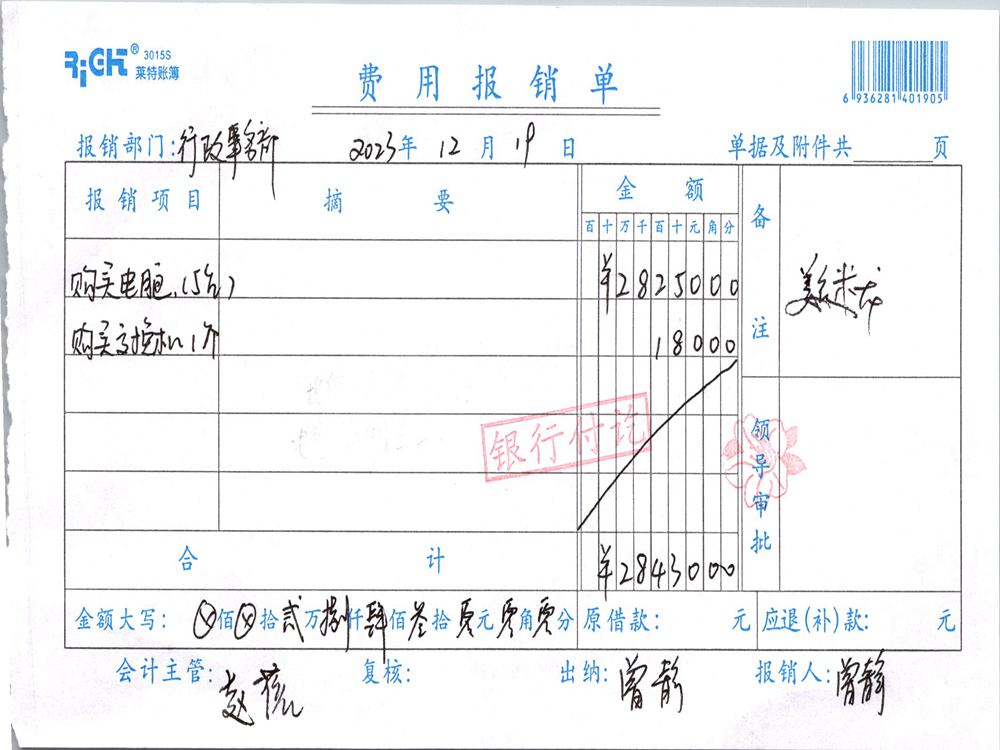 RiGHT® 3015S
莱特账簿
费用报销单
6 936281 401905
报销部门:行政事务部 2023年 12月 19日 单据及附件共 页
报销项目 摘要 金额 备注
百十万千百十元角分
购买电脑(5台) ¥2825000
购买交换机1个 18000
银行付讫
领导审批
合计 ¥2843000
金额大写: ⊗佰⊗拾贰万捌仟肆佰叁拾零元零角零分 原借款: 元 应退(补)款: 元
会计主管: 复核: 出纳:曾静 报销人:曾静